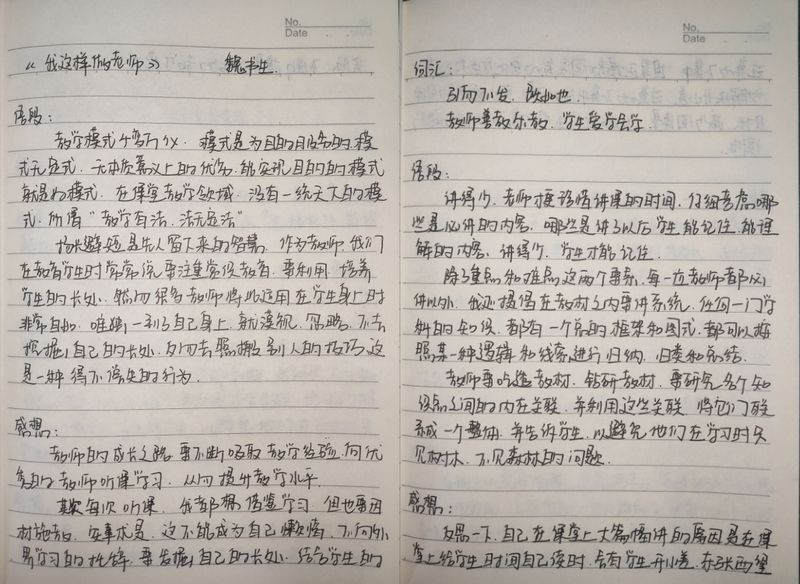 No.
Date
《我这样做老师》 魏书生
语段：
教学模式千变万化，模式是为目的服务的，模
式无定式，无本质意义上的优劣，能实现目的的模式
就是好模式。在课堂教学领域，没有一统天下的模
式，所谓“教学有法，法无定法”
扬长避短是先人留下来的智慧，作为教师，我们
在教育学生时常常说要注重赏识教育，要利用、培养
学生的长处，然而很多教师将此运用在学生身上时
非常自如，唯独一到了自己身上，就漠视、忽略，不去
挖掘自己的长处，反而去照搬别人的技巧，这
是一种得不偿失的行为。
感想：
教师的成长之路要不断吸取教学经验，向优
秀的教师听课学习，从而提升教学水平。
其实每次听课，我都想借鉴学习，但也要因
材施教，实事求是，这不能成为自己懒惰，不向外
界学习的托辞，要发掘自己的长处，结合学生的
No.
Date
词汇：
引而不发，跃如也。
教师善教乐教，学生爱学会学
语段：
讲得少，老师才更珍惜讲课的时间，仔细考虑哪
些是必讲的内容，哪些是讲了以后学生能记住、能理
解的内容，讲得少，学生才能记住。
除了重点和难点这两个要素，每一位教师都必
讲以外，我还提倡在教材之内要讲系统，任何一门学
科的知识，都有一个的框架和图式，都可以按
照某一种逻辑和线索进行归纳、归类和总结。
教师要吃透教材，钻研教材，要研究各个知
识点之间的内在关联，并利用这些关联，将它们联
系成一个整体，并告诉学生，以避免他们在学习时只
见树木，不见森林的问题。
感想：
反思一下，自己在课堂上大篇幅讲的原因是在课
堂上给学生时间自己读时，会有学生开小差，东张西望